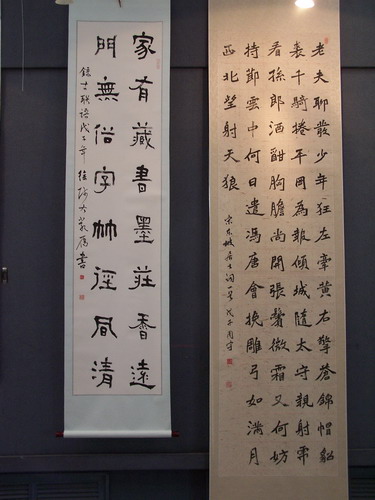 老夫聊發少年狂左牽黃右擎蒼錦帽貂
裘千騎捲平岡為報傾城隨太守親射虎
看孫郎酒酣胸膽尚開張鬢微霜又何妨
持節雲中何日遣馮唐會挽雕弓如滿月
西北望射天狼
宋東坡居士詞一首戊子
家有藏書墨莊香遠
門無俗字竹徑風清
聯語戊子年 書